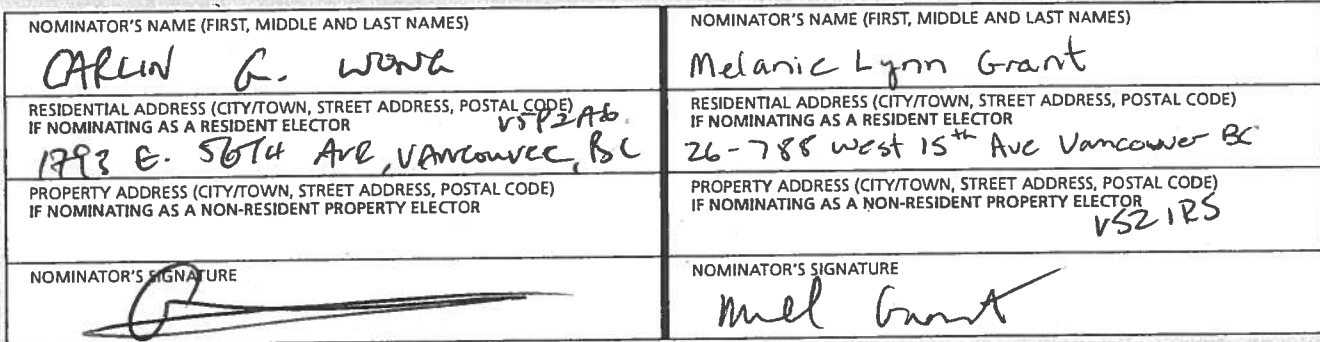 NOMINATOR'S NAME (FIRST, MIDDLE AND LAST NAMES)
CARLIN G. WONG
RESIDENTIAL ADDRESS (CITY/TOWN, STREET ADDRESS, POSTAL CODE)
IF NOMINATING AS A RESIDENT ELECTOR
V5P2A6
1793 E. 56TH AVE, VANCOUVER, BC
PROPERTY ADDRESS (CITY/TOWN, STREET ADDRESS, POSTAL CODE)
IF NOMINATING AS A NON-RESIDENT PROPERTY ELECTOR
NOMINATOR'S SIGNATURE
NOMINATOR'S NAME (FIRST, MIDDLE AND LAST NAMES)
Melanie Lynn Grant
RESIDENTIAL ADDRESS (CITY/TOWN, STREET ADDRESS, POSTAL CODE)
IF NOMINATING AS A RESIDENT ELECTOR
26-788 West 15th Ave Vancouver BC
PROPERTY ADDRESS (CITY/TOWN, STREET ADDRESS, POSTAL CODE)
IF NOMINATING AS A NON-RESIDENT PROPERTY ELECTOR
V5Z 1R5
NOMINATOR'S SIGNATURE
Mel Grant